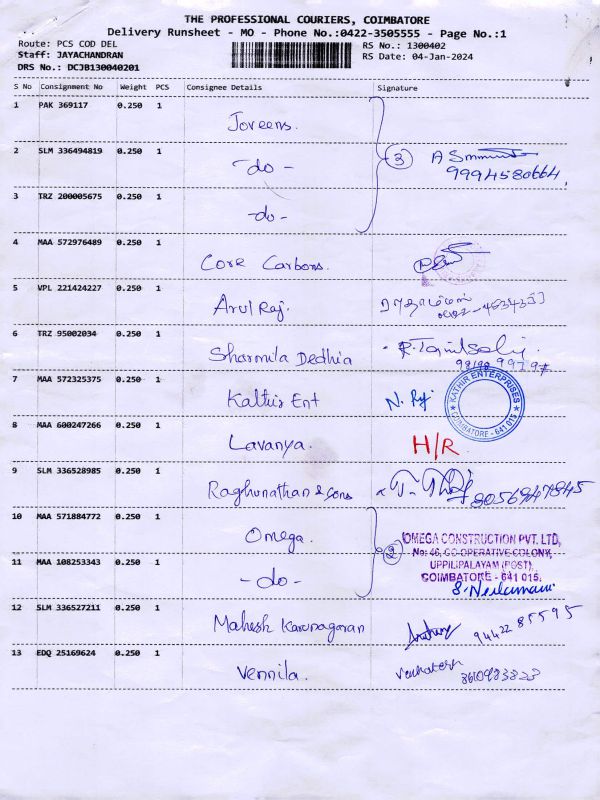 THE PROFESSIONAL COURIERS, COIMBATORE
Delivery Runsheet - MO - Phone No.:0422-3505555 - Page No.:1
Route: PCS COD DEL
RS No.: 1300402
Staff: JAYACHANDRAN
RS Date: 04-Jan-2024
DRS No.: DCJB130040201
S No Consignment No Weight PCS Consignee Details Signature
1 PAK 369117 0.250 1
Joveens.
2 SLM 336494819 0.250 1
-do- 3
9994580664,
3 TRZ 200005675 0.250 1
-do-
4 MAA 572976489 0.250 1
Core Carbons.
5 VPL 221424227 0.250 1
Arul Raj.
6 TRZ 95002034 0.250 1
Sharmila Dedhia
7 MAA 572325375 0.250 1
Kathir Ent N. Raj
KATHIR ENTERPRISES
COIMBATORE - 641 015
8 MAA 600247266 0.250 1
Lavanya. H/R
9 SLM 336528985 0.250 1
Raghunathan & Sons 8056947845
10 MAA 571884772 0.250 1
Omega.
OMEGA CONSTRUCTION PVT. LTD,
No: 46, CO-OPERATIVE COLONY,
2
UPPILIPALAYAM (POST),
COIMBATORE - 641 015.
11 MAA 108253343 0.250 1
-do-
12 SLM 336527211 0.250 1
Mahesh Karunagaran 9442285595
13 EDQ 25169624 0.250 1
Vennila. Venkatesh